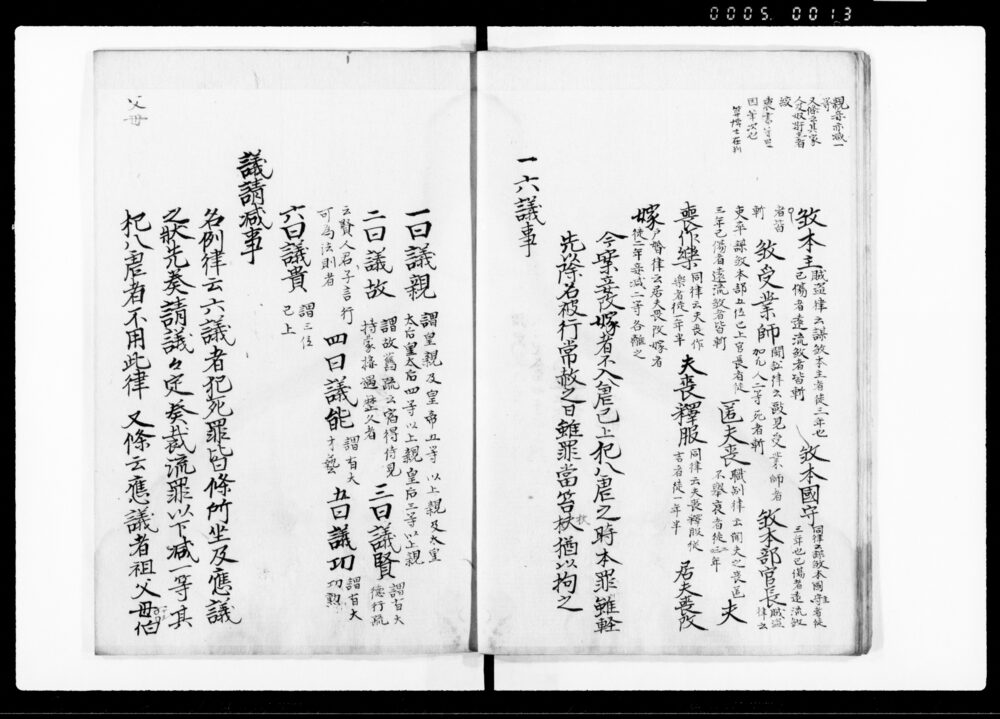 0005. 0013
親者亦減一
等
又條云其家
人奴婢主者
絞
殺本主 賊盗律云謀殺本主者徒三年也
已傷者遠流殺者皆斬
殺本國守 同律云謀殺本國守者徒
三年也已傷者遠流殺
者皆
斬
殺受業師 闘訟律云毆見受業師者
加凡人二等死者斬
殺本部官長 賊盗
律云
吏卒謀殺本部五位已上官長者徒
三年已傷者遠流殺者皆斬
匿夫喪 職制律云聞夫之喪匿
不擧哀者徒二年
夫
喪作樂 同律云夫喪作
樂者徒一年半
夫喪釋服 同律云夫喪釋服従
吉者徒一年半
居夫喪改
嫁 戸婚律云居夫喪改嫁者
徒二年妾減二等各離之
今案妾改嫁者不入虐已上犯八虐之時本罪雖軽
先除名被行常赦之日雖罪當笞杖猶以拘之
一六議事
一曰議親 謂皇親及皇帝五等以上親及太皇
太后皇太后四等以上親皇后三等以上親
二曰議故 謂故舊疏云宿得侍見
持蒙接遇歴久者
三曰議賢 謂有大
徳行疏
云賢人君子言行
可為法則者
四曰議能 謂有大
才藝
五曰議功 謂有大
功勲
六曰議貴 謂三位
已上
議請減事
名例律云六議者犯死罪皆條所坐及應議
之状先奏請議々定奏裁流罪以下減一等其
犯八虐者不用此律 又條云應議者祖父母伯
父母